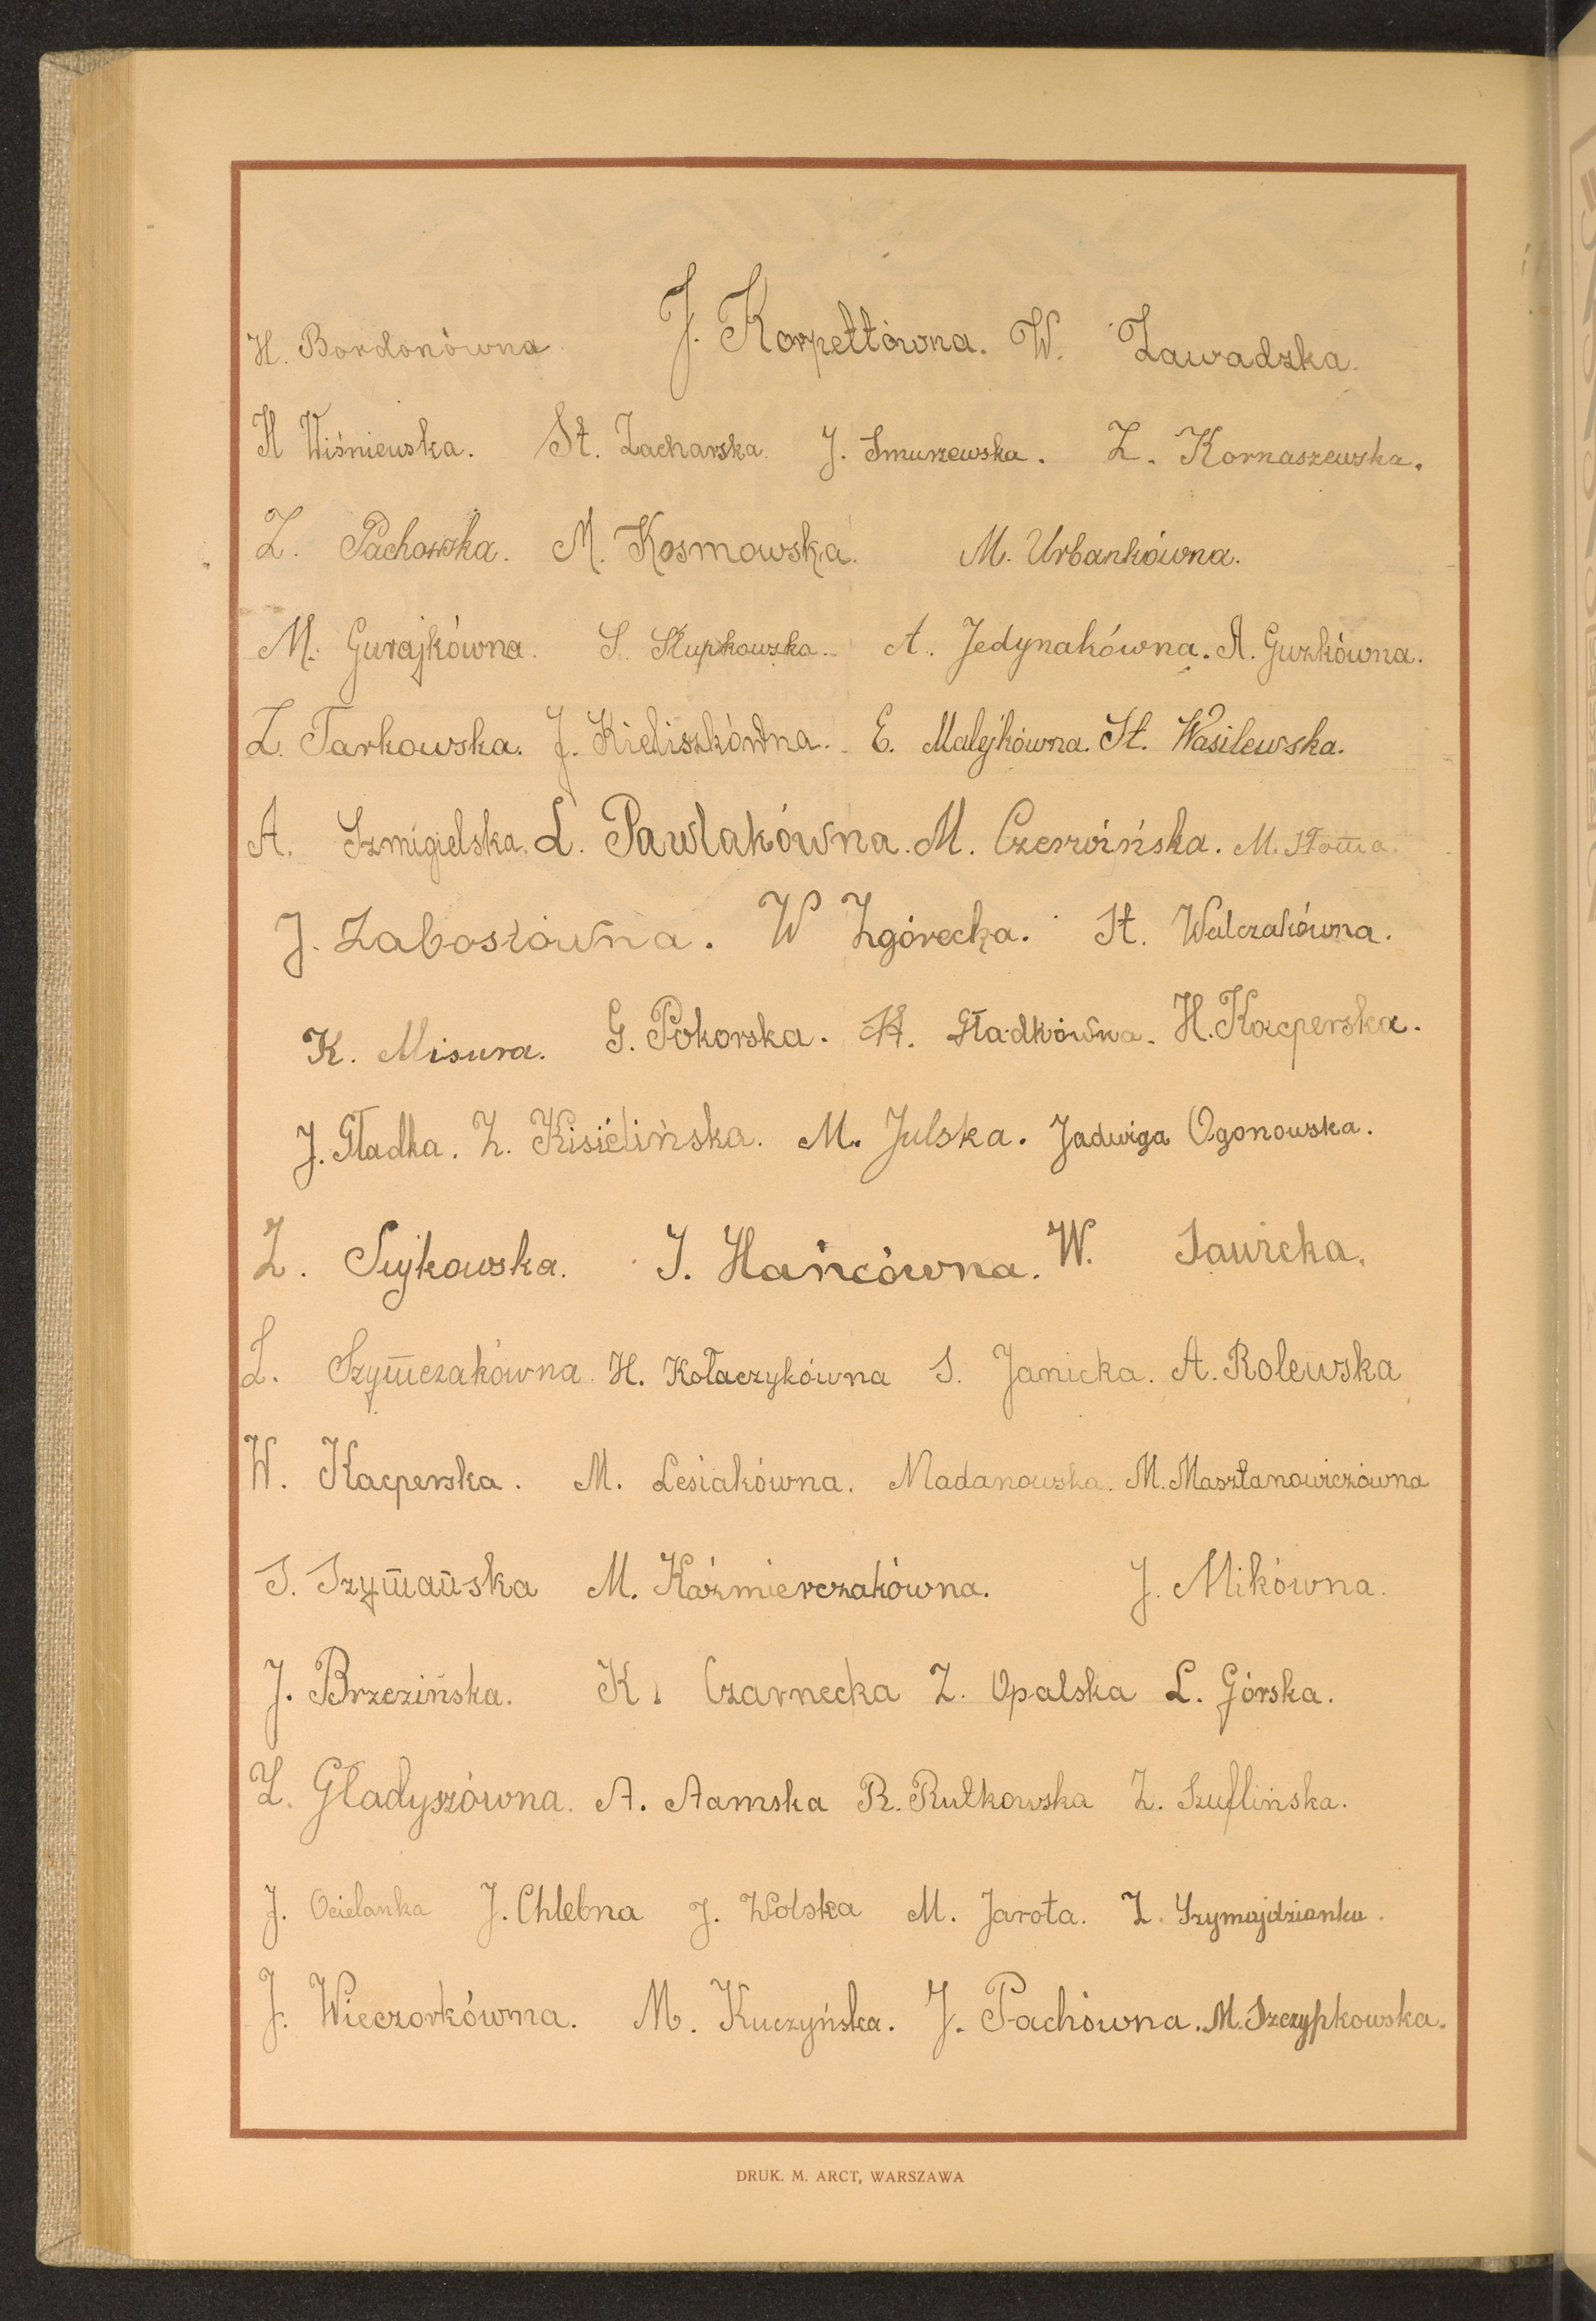 H. Bordonówna J. Korpettówna. W. Zawadzka.
H Wiśniewska. St. Zacharska. J. Smurzewska. Z. Kornaszewska.
Z. Pachowska. M. Kosmowska. M. Urbankówna.
M. Gurajkówna. S. Słupkowska. A. Jedynakówna. A. Guzkówna.
Z. Tarkowska. J. Kieliszkówna. E. Malejkówna. St. Wasilewska.
A. Szmigielska. L. Pawlakówna. M. Czerwińska. M. Słoma.
J. Zabostówna. W Zgórecka. St. Walczakówna.
K. Misura. G. Pokorska. H. Gładkówna. H. Kacperska.
J. Gładka. Z. Kisielińska. M. Julska. Jadwiga Ogonowska.
Z. Sujkowska. J. Hańcówna. W. Sawicka.
L. Szymczakówna. H. Kołaczykówna S. Janicka. A. Rolewska
W. Kacperska. M. Lesiakówna. Madanowska. M. Maszłanowiczówna
S. Szymańska M. Kaźmierczakówna. J. Mikówna.
J. Brzezińska. K. Czarnecka Z. Opalska L. Górska.
Z. Gładyszówna. A. Aamska R. Rutkowska Z. Szuflińska.
J. Ocielanka J. Chlebna J. Wolska M. Jarota. Z. Szymajdzianka.
J. Wieczorkówna. M. Kuczyńska. J. Pachówna. M. Szczypkowska.
DRUK. M. ARCT, WARSZAWA